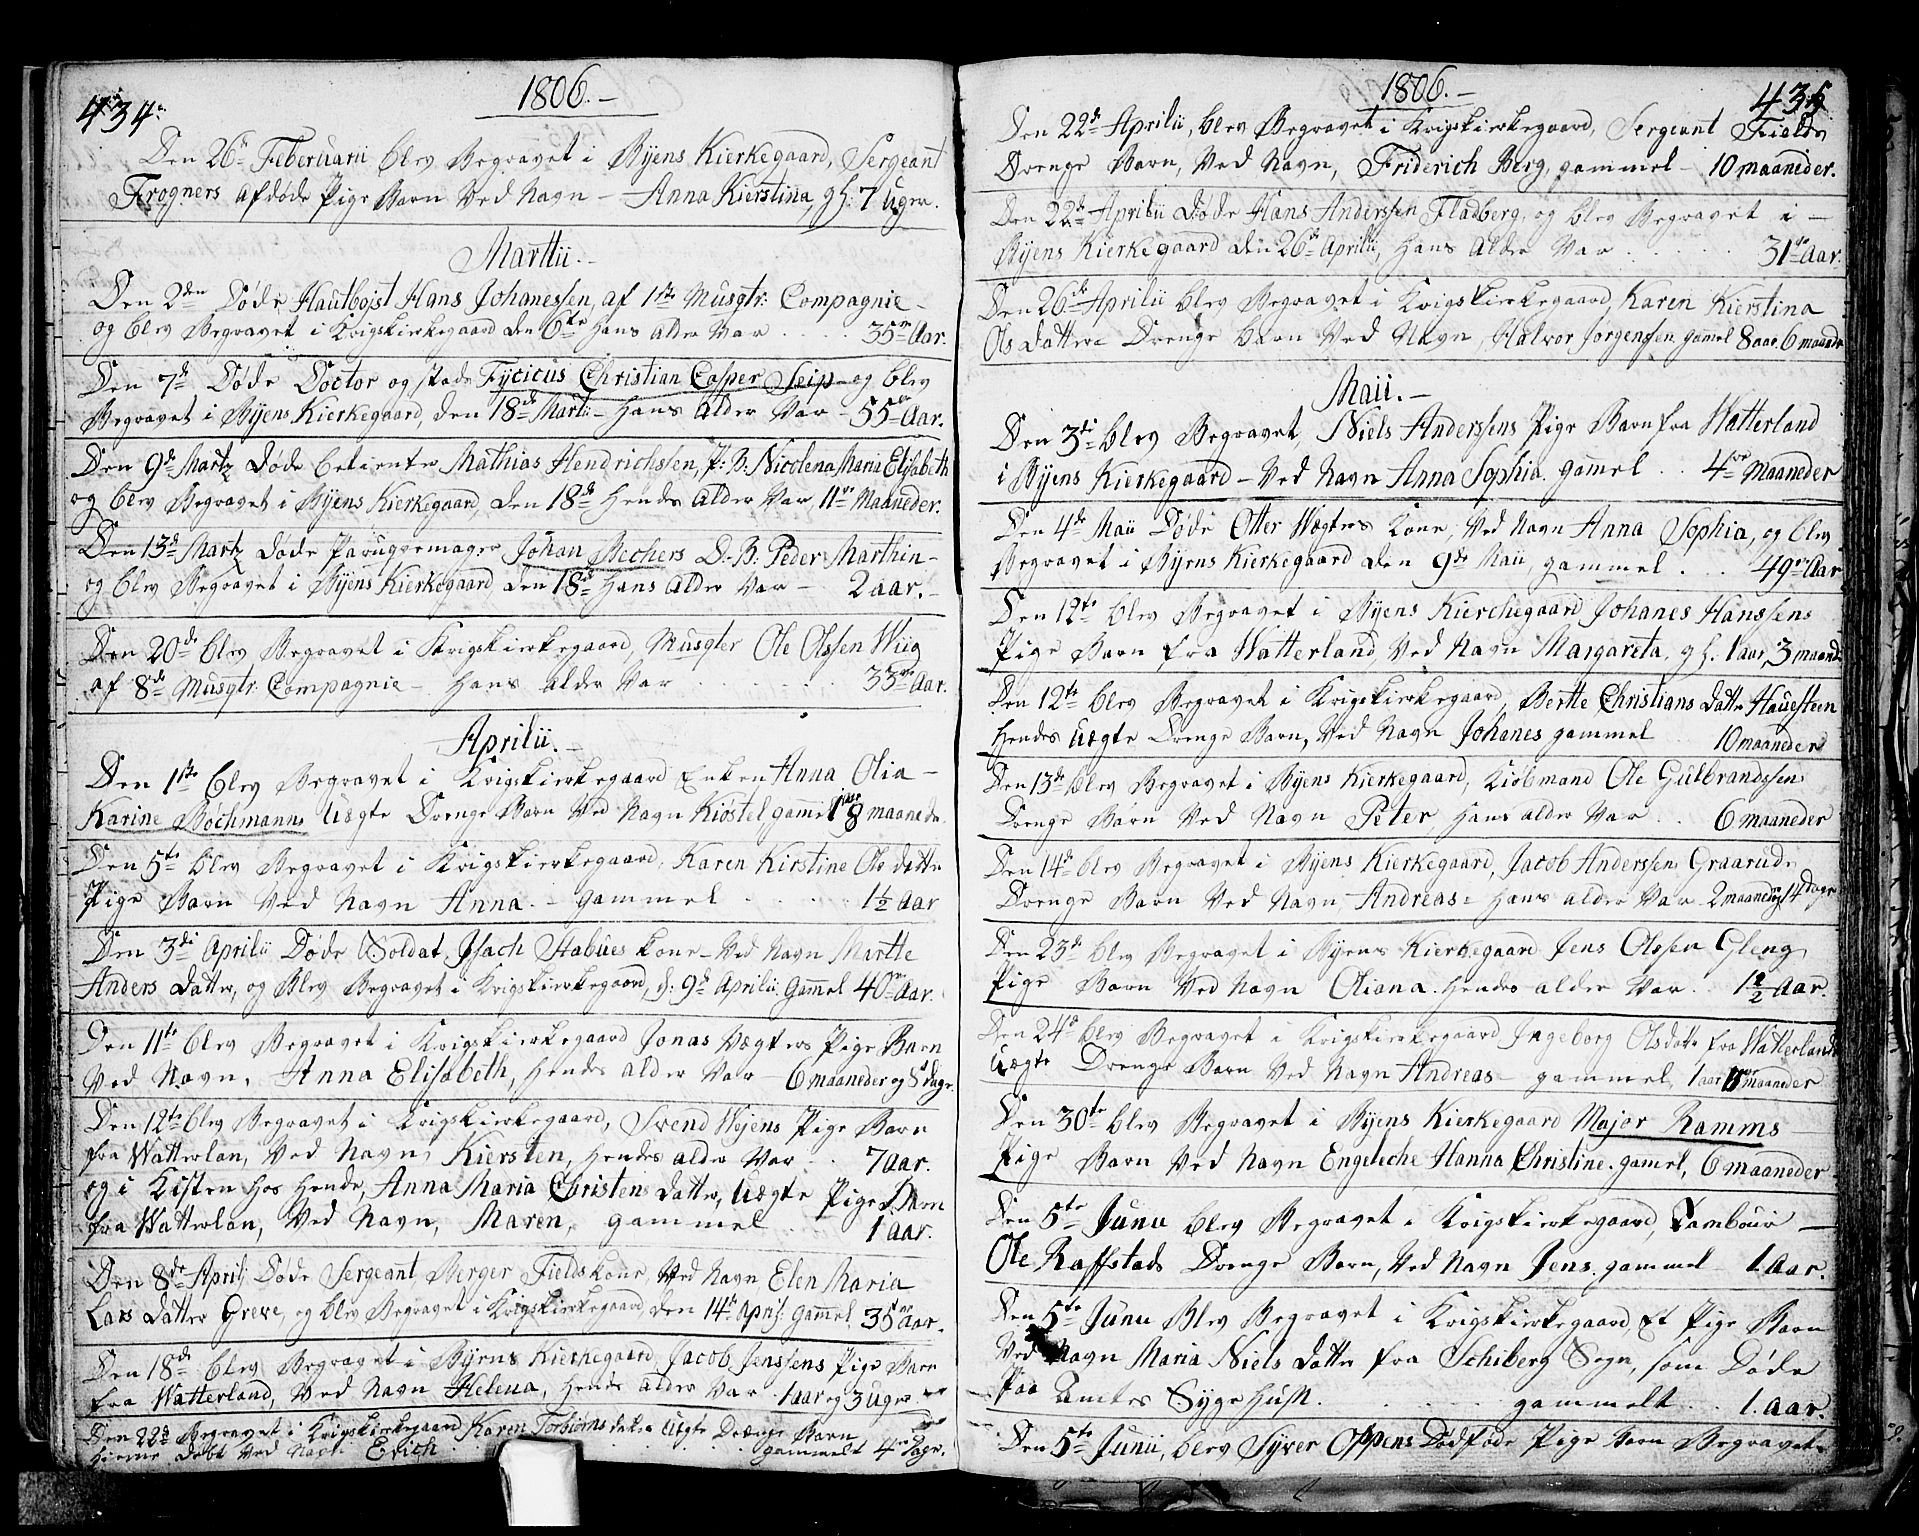 434.
1806.
Den 26de Februarii blev Begravet i Byens Kierkegaard, Sergeant
Frogners afdøde Pige Barn Ved Navn – Anna Kierstina, gl: 7 Uger.
Martii.
Den 2den Døde Hautboist Hans Johanessen, af 1ste Musqtr: Compagnie –
og blev Begravet i Krigskierkegaard den 6te hans alder Var 35 Aar.
Den 7de Døde Doctor og stads Fycicus Christian Casper Seip – og blev
Begravet i Byens Kierkegaard, den 18de Martii – hans alder Var – 55 Aar.
Den 9de Martz Døde betiente Mathias Hendrichssen, P: B: Nicolena Maria Elisabeth
og blev Begravet i Byens Kierkegaard, den 18de hendes alder Var 11 Maaneder.
Den 13de Martz Døde Paruqqemager Johan Bechers D. B. Peder Marthin –
og blev Begravet i Byens Kierkegaard, den 18de hans alder Var – 2 aar. –
Den 20de blev Begravet i Krigskierkegaard, Musqter Ole Olssen Wiig
af 8de Musqtr: Compagnie – hans alder Var 33 Aar.
Aprilii. –
Den 1ste blev Begravet i Krigskierkegaard Enken Anna Olia –
Karine Bøchmanns Uægte Drenge Barn Ved Navn Kiøstel gammel 18 maaneder.
Den 5te blev Begravet i Krigskierkegaard, Karen Kirstine Ols datter
Pige Barn Ved Navn Anna. – gammel 1½ Aar
Den 3die Aprilii Døde Soldat, Isach Stabues kone – Ved Navn Marthe
Anders datter, og Blev Begravet i Krigskierkegaard, d: 9de Aprilii. Gamel 40 Aar.
Den 11te blev Begravet i Krigskierkegaard Jonas Vægters Pige Barn
Ved Navn, Anna Elisabeth, hendes alder Var – 6 maaneder og 5 dage.
Den 12te blev Begravet i Krigskierkegaard, Svend Wejens Pige Barn
fra Watterlan, Ved Navn, Kiersten, hendes alder Var 7 aar.
og i Kisten hos hende, Anna Maria Christens datter, Uægte Pige Barn
fra Watterlan, Ved Navn, Maren, gammel 1 aar.
Den 8de Aprilj Døde Sergeant Berger Fields kone, Ved Navn, Elen Maria
Lars Datter Greve, og blev Begravet i Krigskierkegaard, den 14de April: Gammel, 35 Aar.
Den 18de blev Begravet i Byens Kierkegaard, Jacob Jenssens Pige Barn
fra Watterland, Ved Navn Helena, hendes alder Var 1 aar og 3 Uger
Den 22de Begravet i Krigskierkegaard Karen Torbiørns datter Uægte Drenge Barn
hieme døbt Ved Navn Erich gammelt 4 Dage.
1806.
435
Den 22de Aprilii, blev Begravet i Krigskierkegaard, Sergeant Fields
Drenge Barn, Ved Navn, Friderich Berg, gammel – 10 maaneder.
Den 22de Aprilii Døde Hans Anderssen Fladberg, og blev Begravet i –
Byens Kierkegaard den 26de Aprilii, hans alder Var 31 Aar.
Den 26de Aprilii blev Begravet i Krigskierkegaard, Karen Kierstina
Ols datters Drenge Barn Ved Navn, Halvor Jorgenssen gamel 8 aar 6 maaneder
Maii. –
Den 3die blev Begravet, Niels Anderssens Pige Barn fra Watterland
i Byens Kierkegaard – Ved Navn Anna Sophia. gamel 4re Maaneder
Den 4de Maii Døde Otter Vægters kone, Ved Navn Anna Sophia, og blev
Begravet i Byens Kierkegaard den 9de Maii, gammel 49 Aar
Den 12te blev Begravet i Byens Kierchegaard, Johanes Hanssens
Pige Barn fra Watterland, Ved Navn Margareta, gl. 1 aar 3 maand
Den 12te blev Begravet i Krigskierkegaard, Berte Christians datter Hauesteen
hendes Uægte Drenge Barn, Ved Navn Johanes gammel 10 maaneder
Den 13de blev Begravet i Byens Kierkegaard, Kiøbmand Ole Gulbrandssens
Drenge Barn Ved Navn Peter, hans alder Var 6 maaneder
Den 14de blev Begravet i Byens Kierkegaard, Jacob Anderssen Graaruds
Drenge Barn Ved Navn, Andreas – hans alder Var 2 maaneder 14 Dage
Den 23de blev Begravet i Byens Kierkegaard Jens Olssen Gleng
Pige Barn Ved Navn Oliana. hendes alder Var 1½ Aar.
Den 24de blev Begravet i Krigskierkegaard Ingeborg Olsdatter fra Watterland
Uægte Drenge Barn Ved Navn Andreas – gammel, 1 aar maaneder
Den 30te blev Begravet i Byens Kierkegaard Major Ramms –
Pige Barn Ved Navn Engeleche Hanna Christine. gamel, 6 maaneder
Den 5te Junii blev Begravet i Krigskierkegaard, Tambour –
Ole Raffstads Drenge Barn, Ved Navn Jens. gammel 1. Aar.
Den 5te Junii Blev Begravet i Krigskierkegaard, Et Pige Barn
Ved Navn Maria Niels datter fra Schiberg Sogn, som Døde
Paa Amtes Syge Huus. gammelt 1. Aar.
Den 5te Junii, blev Syver Oppens Dødføde Pige Barn Begravet